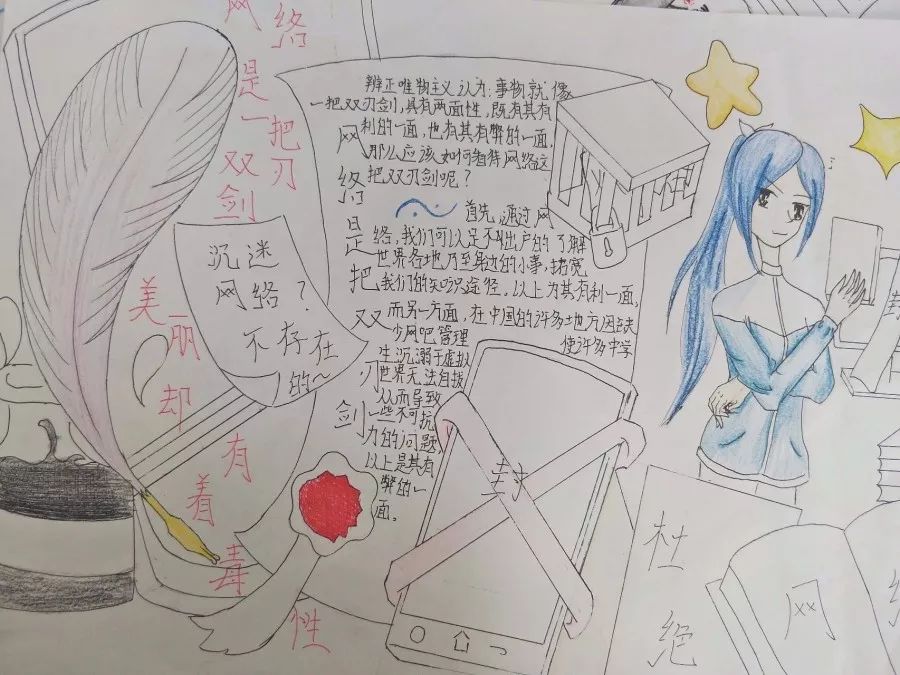 网络
是一把
双刃
剑
美丽却有着毒性
沉迷
网络？
不存在
的~
网络是把双刃剑
辨正唯物主义认为,事物就像
一把双刃剑,具有两面性,既有其有
利的一面,也有其有弊的一面,
那么应该如何看待网络这
把双刃剑呢？
首先,通过网
络,我们可以足不出户的了解
世界各地乃至身边的小事,拓宽
我们的知识途径,以上为其有利一面,
而另一方面,在中国的许多地方因缺
少网吧管理
使许多中学
生沉溺于虚拟
世界无法自拔
从而导致
一些不可抗
力的问题,
以上是其有
弊的一
面。
封
杜
绝
网